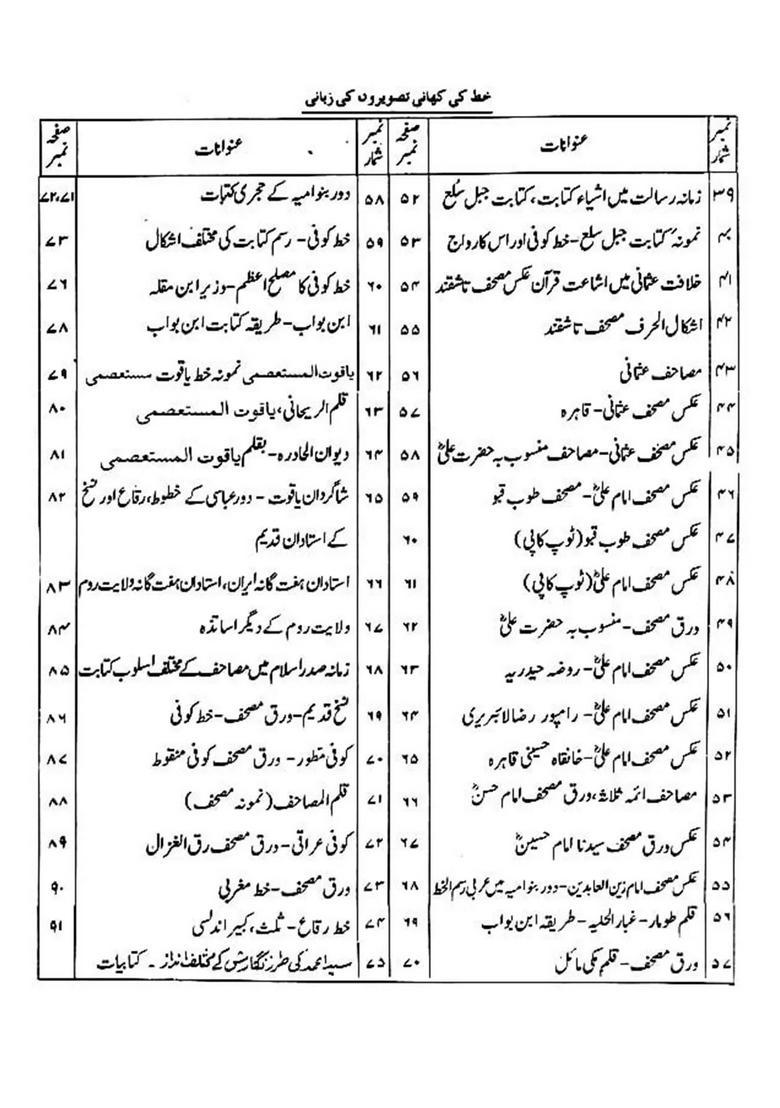 خط کی کہانی تصویروں کی زبانی
نمبر شمار | عنوانات | صفحہ نمبر
۳۹ | زمانہ رسالت میں اشیاء کتابت، کتابت جبل سلع | ۵۲
۴۰ | نمونہ کتابت جبل سلع - خط کوفی اور اس کا رواج | ۵۳
۴۱ | خلافت عثمانی میں اشاعت قرآن عکس مصحف تاشقند | ۵۴
۴۲ | اشکال الحرف مصحف تاشقند | ۵۵
۴۳ | مصاحف عثمانی | ۵۶
۴۴ | عکس مصحف عثمانی - قاہرہ | ۵۷
۴۵ | عکس مصحف عثمانی - مصاحف منسوب بہ حضرت علیؓ | ۵۸
۴۶ | عکس مصحف امام علیؓ - مصحف طوب قبو | ۵۹
۴۷ | عکس مصحف طوب قبو (توپ کاپی) | ۶۰
۴۸ | عکس مصحف امام علیؓ (توپ کاپی) | ۶۱
۴۹ | ورق مصحف - منسوب بہ حضرت علیؓ | ۶۲
۵۰ | عکس مصحف امام علیؓ - روضہ حیدریہ | ۶۳
۵۱ | عکس مصحف امام علیؓ - رامپور رضا لائبریری | ۶۴
۵۲ | عکس مصحف امام علیؓ - خانقاہ حسینی قاہرہ | ۶۵
۵۳ | مصاحف ائمہ ثلاثہ، ورق مصحف امام حسنؓ | ۶۶
۵۴ | عکس ورق مصحف سیدنا امام حسینؓ | ۶۷
۵۵ | عکس مصحف امام زین العابدین - دور بنوامیہ میں عربی رسم الخط | ۶۸
۵۶ | قلم طومار - غبار الحلیہ - طریقہ ابن بواب | ۶۹
۵۷ | ورق مصحف - قلم مکی مائل | ۷۰
نمبر شمار | عنوانات | صفحہ نمبر
۵۸ | دور بنوامیہ کے حجری کتبات | ۷۲،۷۱
۵۹ | خط کوفی - رسم کتابت کی مختلف اشکال | ۷۳
۶۰ | خط کوفی کا مصلح اعظم - وزیر ابن مقلہ | ۷۶
۶۱ | ابن بواب - طریقہ کتابت ابن بواب | ۷۸
۶۲ | یاقوت المستعصمی نمونہ خط یاقوت مستعصمی | ۷۹
۶۳ | قلم الریحانی، یاقوت المستعصمی | ۸۰
۶۴ | دیوان الحادرہ - بقلم یاقوت المستعصمی | ۸۱
۶۵ | شاگردان یاقوت - دور عباسی کے خطوط، رقاع اور نسخ | ۸۲
کے استادان قدیم
۶۶ | استادان ہفت گانہ ایران، استادان ہفت گانہ ولایت روم | ۸۳
۶۷ | ولایت روم کے دیگر اساتذہ | ۸۴
۶۸ | زمانہ صدر اسلام میں مصاحف کے مختلف اسلوب کتابت | ۸۵
۶۹ | نسخ قدیم - ورق مصحف - خط کوفی | ۸۶
۷۰ | کوفی متطور - ورق مصحف کوفی منقوط | ۸۷
۷۱ | قلم المصاحف (نمونہ مصحف) | ۸۸
۷۲ | کوفی عراقی - ورق مصحف رق الغزال | ۸۹
۷۳ | ورق مصحف - خط مغربی | ۹۰
۷۴ | خط رقاع - ثلث، کبیر اندلسی | ۹۱
۷۵ | سید احمد کی طرز نگارش کے مختلف انداز - کتابیات